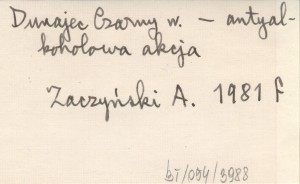 Dunajec Czarny w. – antyal-
koholowa akcja
Zaczyński A. 1981 f
bT/094/3988